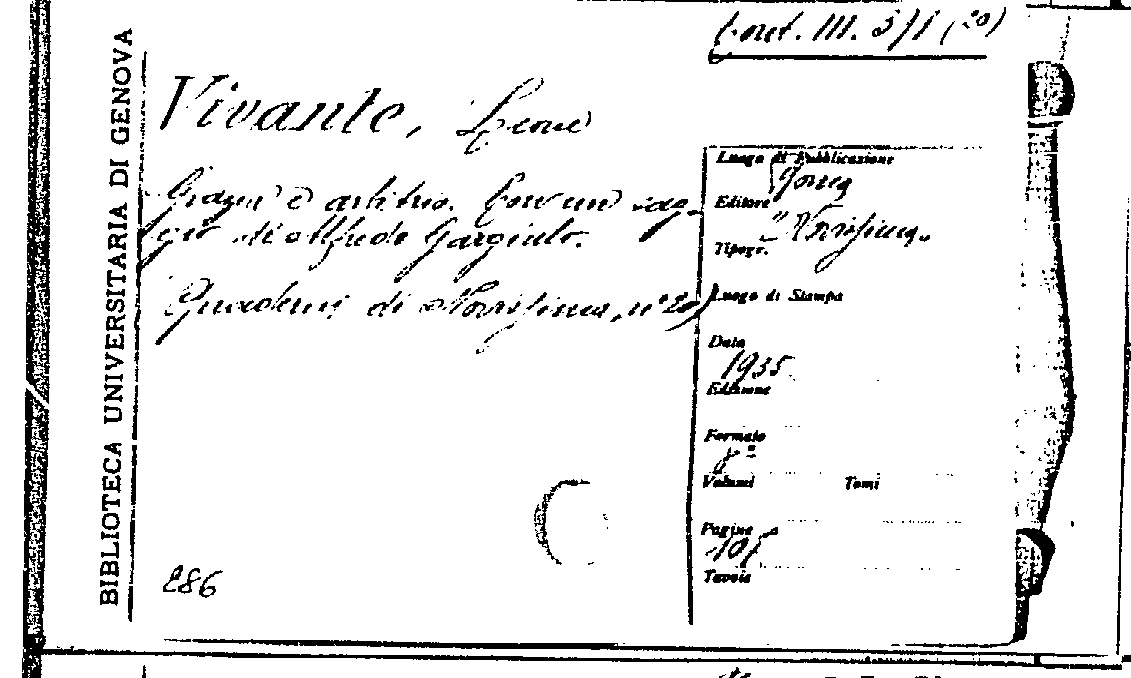 BIBLIOTECA UNIVERSITARIA DI GENOVA
Vivante, Leone
e arbitrio. Con un sag-
gio di Alfredo Gargiulo.
Quaderni di Novissima, n° 20)
286
Luogo di Pubblicazione
Roma
Editore
"Novissima"
Tipogr.
Luogo di Stampa
Data
1935
Edizione
Formato
8°
Volumi Tomi
Pagine
Tavole